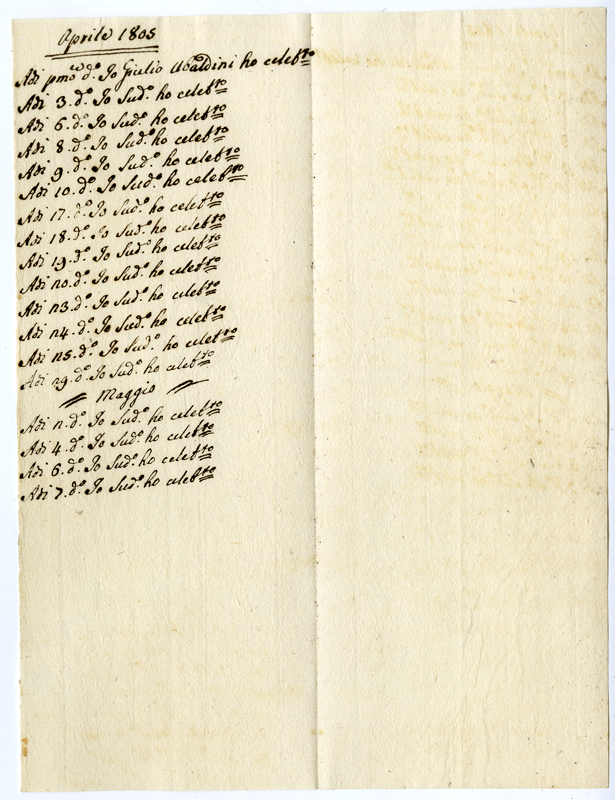 Aprile 1805
Adi pmo d.o Io Giulio Ubaldini ho celebto
Adi 3. d.o Io Sud.o ho celebto
Adi 6. d.o Io Sud.o ho celebto
Adi 8. d.o Io Sud.o ho celebto
Adi 9. d.o Io Sud.o ho celebto
Adi 10. d.o Io Sud.o ho celebto
Adi 17. d.o Io Sud.o ho celebto
Adi 18. d.o Io Sud.o ho celebto
Adi 19. d.o Io Sud.o ho celebto
Adi 20. d.o Io Sud.o ho celebto
Adi 23. d.o Io Sud.o ho celebto
Adi 24. d.o Io Sud.o ho celebto
Adi 25. d.o Io Sud.o ho celebto
Adi 29. d.o Io Sud.o ho celebto
Maggio
Adi 2. d.o Io Sud.o ho celebto
Adi 4. d.o Io Sud.o ho celebto
Adi 6. d.o Io Sud.o ho celebto
Adi 7. d.o Io Sud.o ho celebto